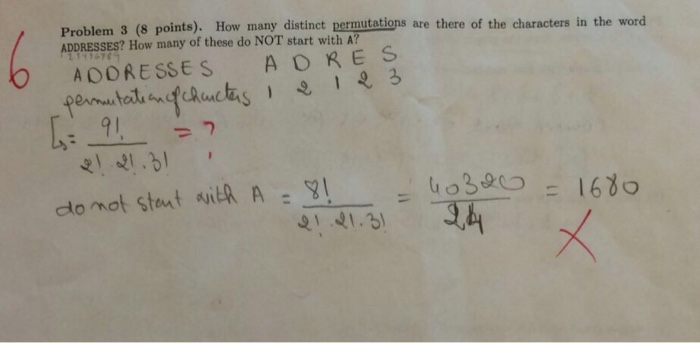 Problem 3 (8 points). How many distinct permutations are there of the characters in the word
ADDRESSES? How many of these do NOT start with A?
123456789
6
ADDRESSES A D R E S
permutation of charcters 1 2 1 2 3
= 9! / 2! 2! . 3! = ?
do not start with A = 8! / 2! . 2! . 3! = 40320 / 24 = 1680
X